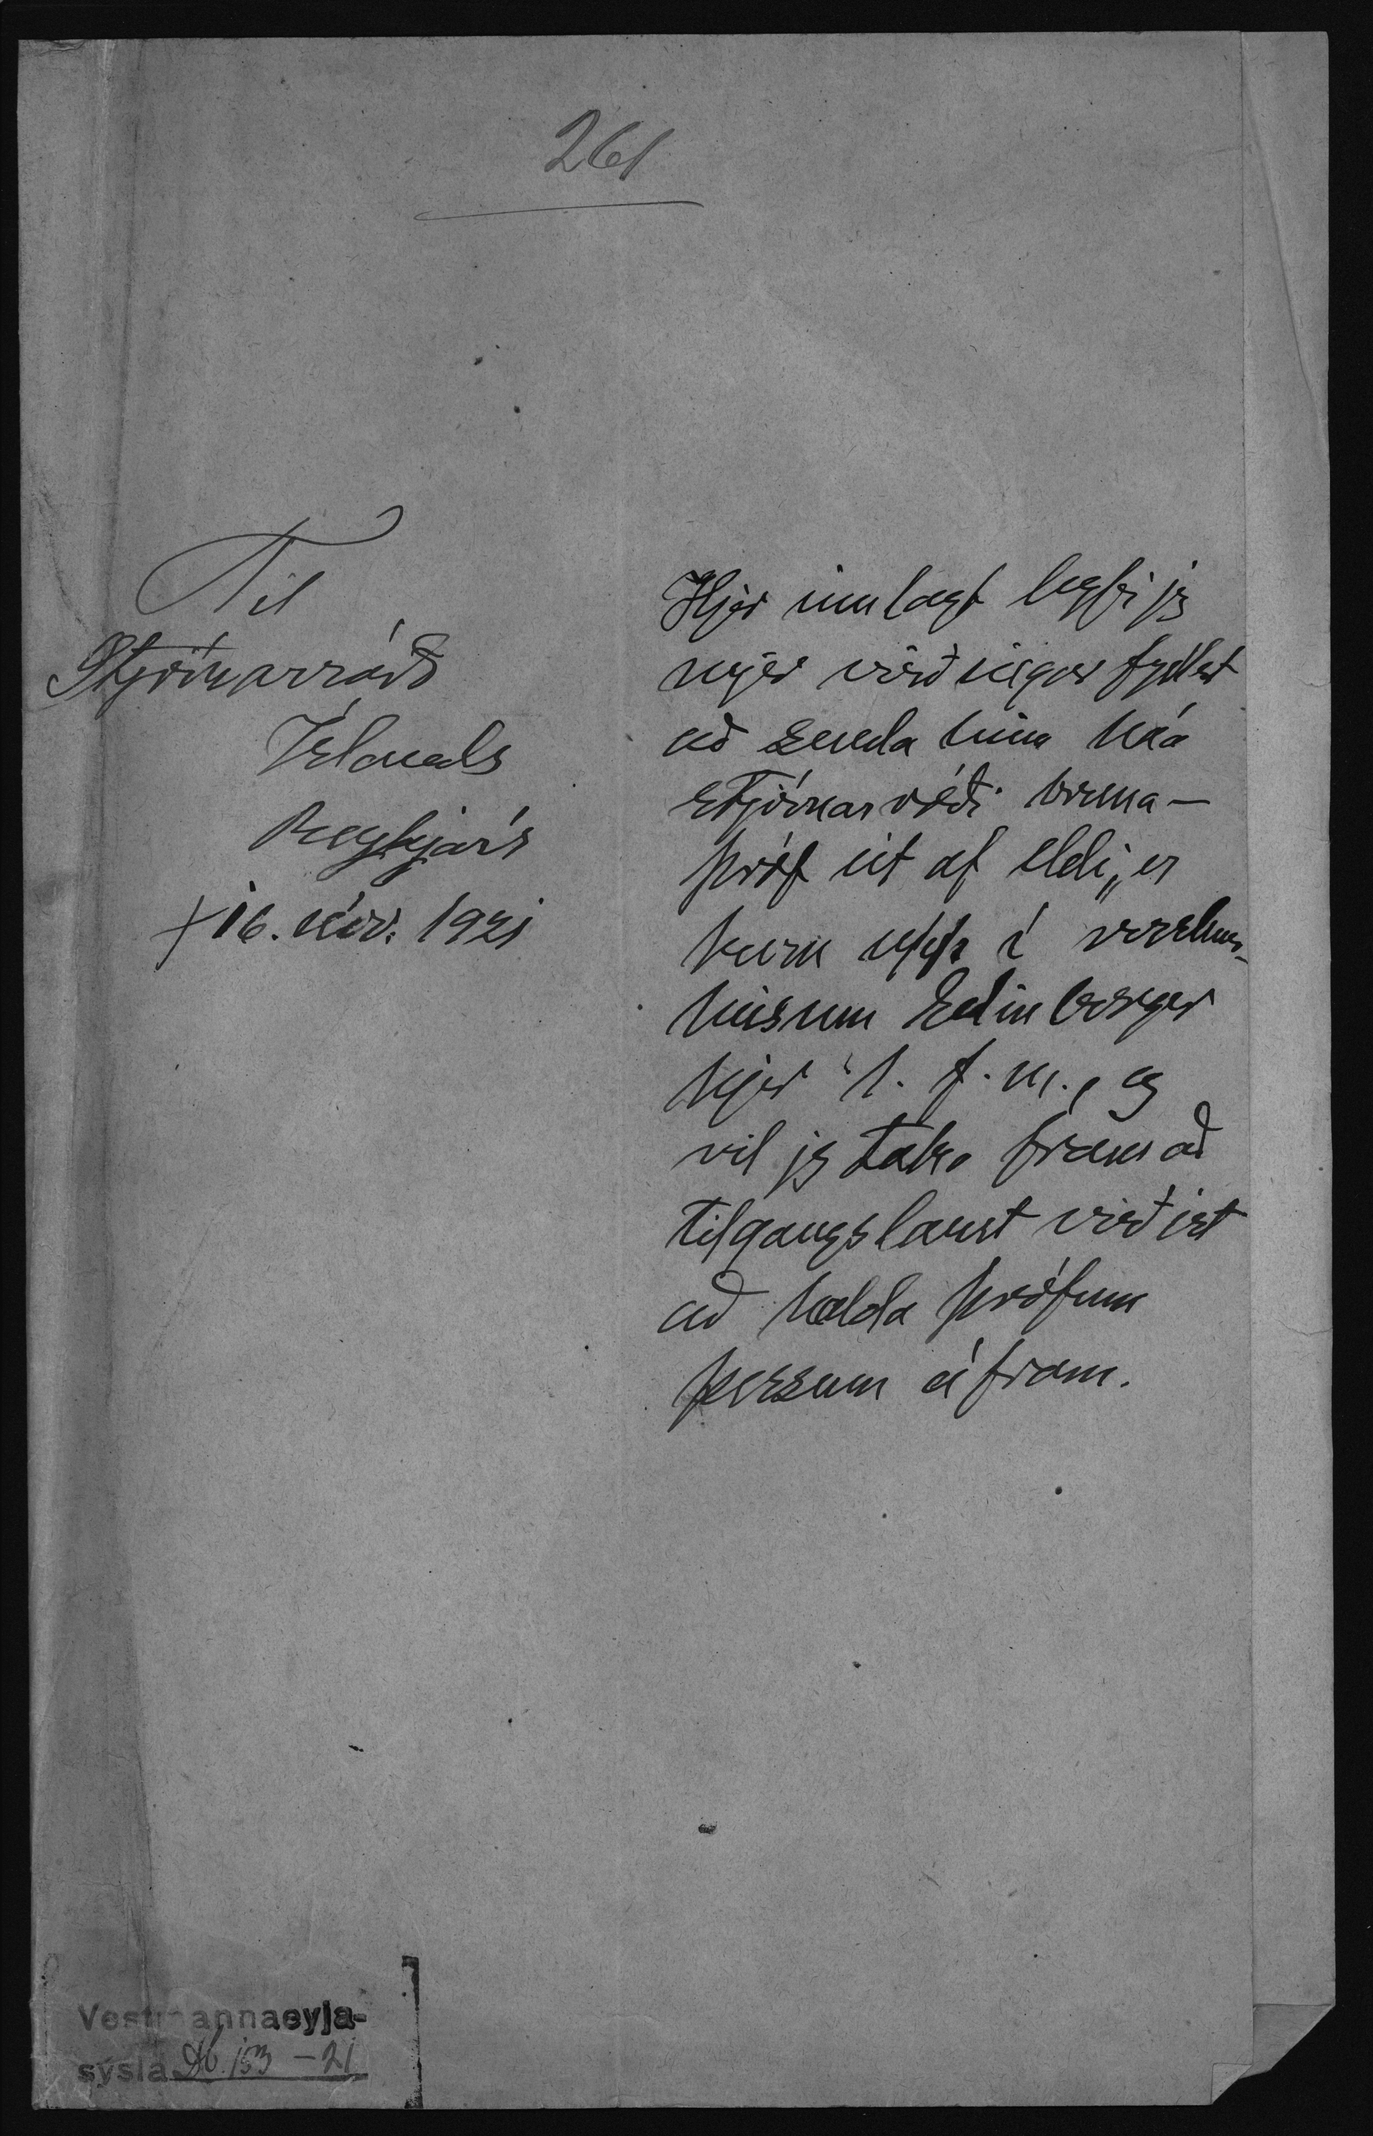 261
Til
Stjórnarráðs
Íslands
Reykjavík
16. nóv. 1921
Hjer innlagt leyfi jg
mjer virðingarfyllst
að senda hinu háa
stjórnarráði bruna-
próf út af eldi, er
kom upp í verslunar-
húsum Edinborgar
hjer í. f. m., og
vil jg taka fram að
tilgangslaust virðist
að halda prófum
þessum áfram.
Vestmannaeyja-
sýsla Db. 153 - 21